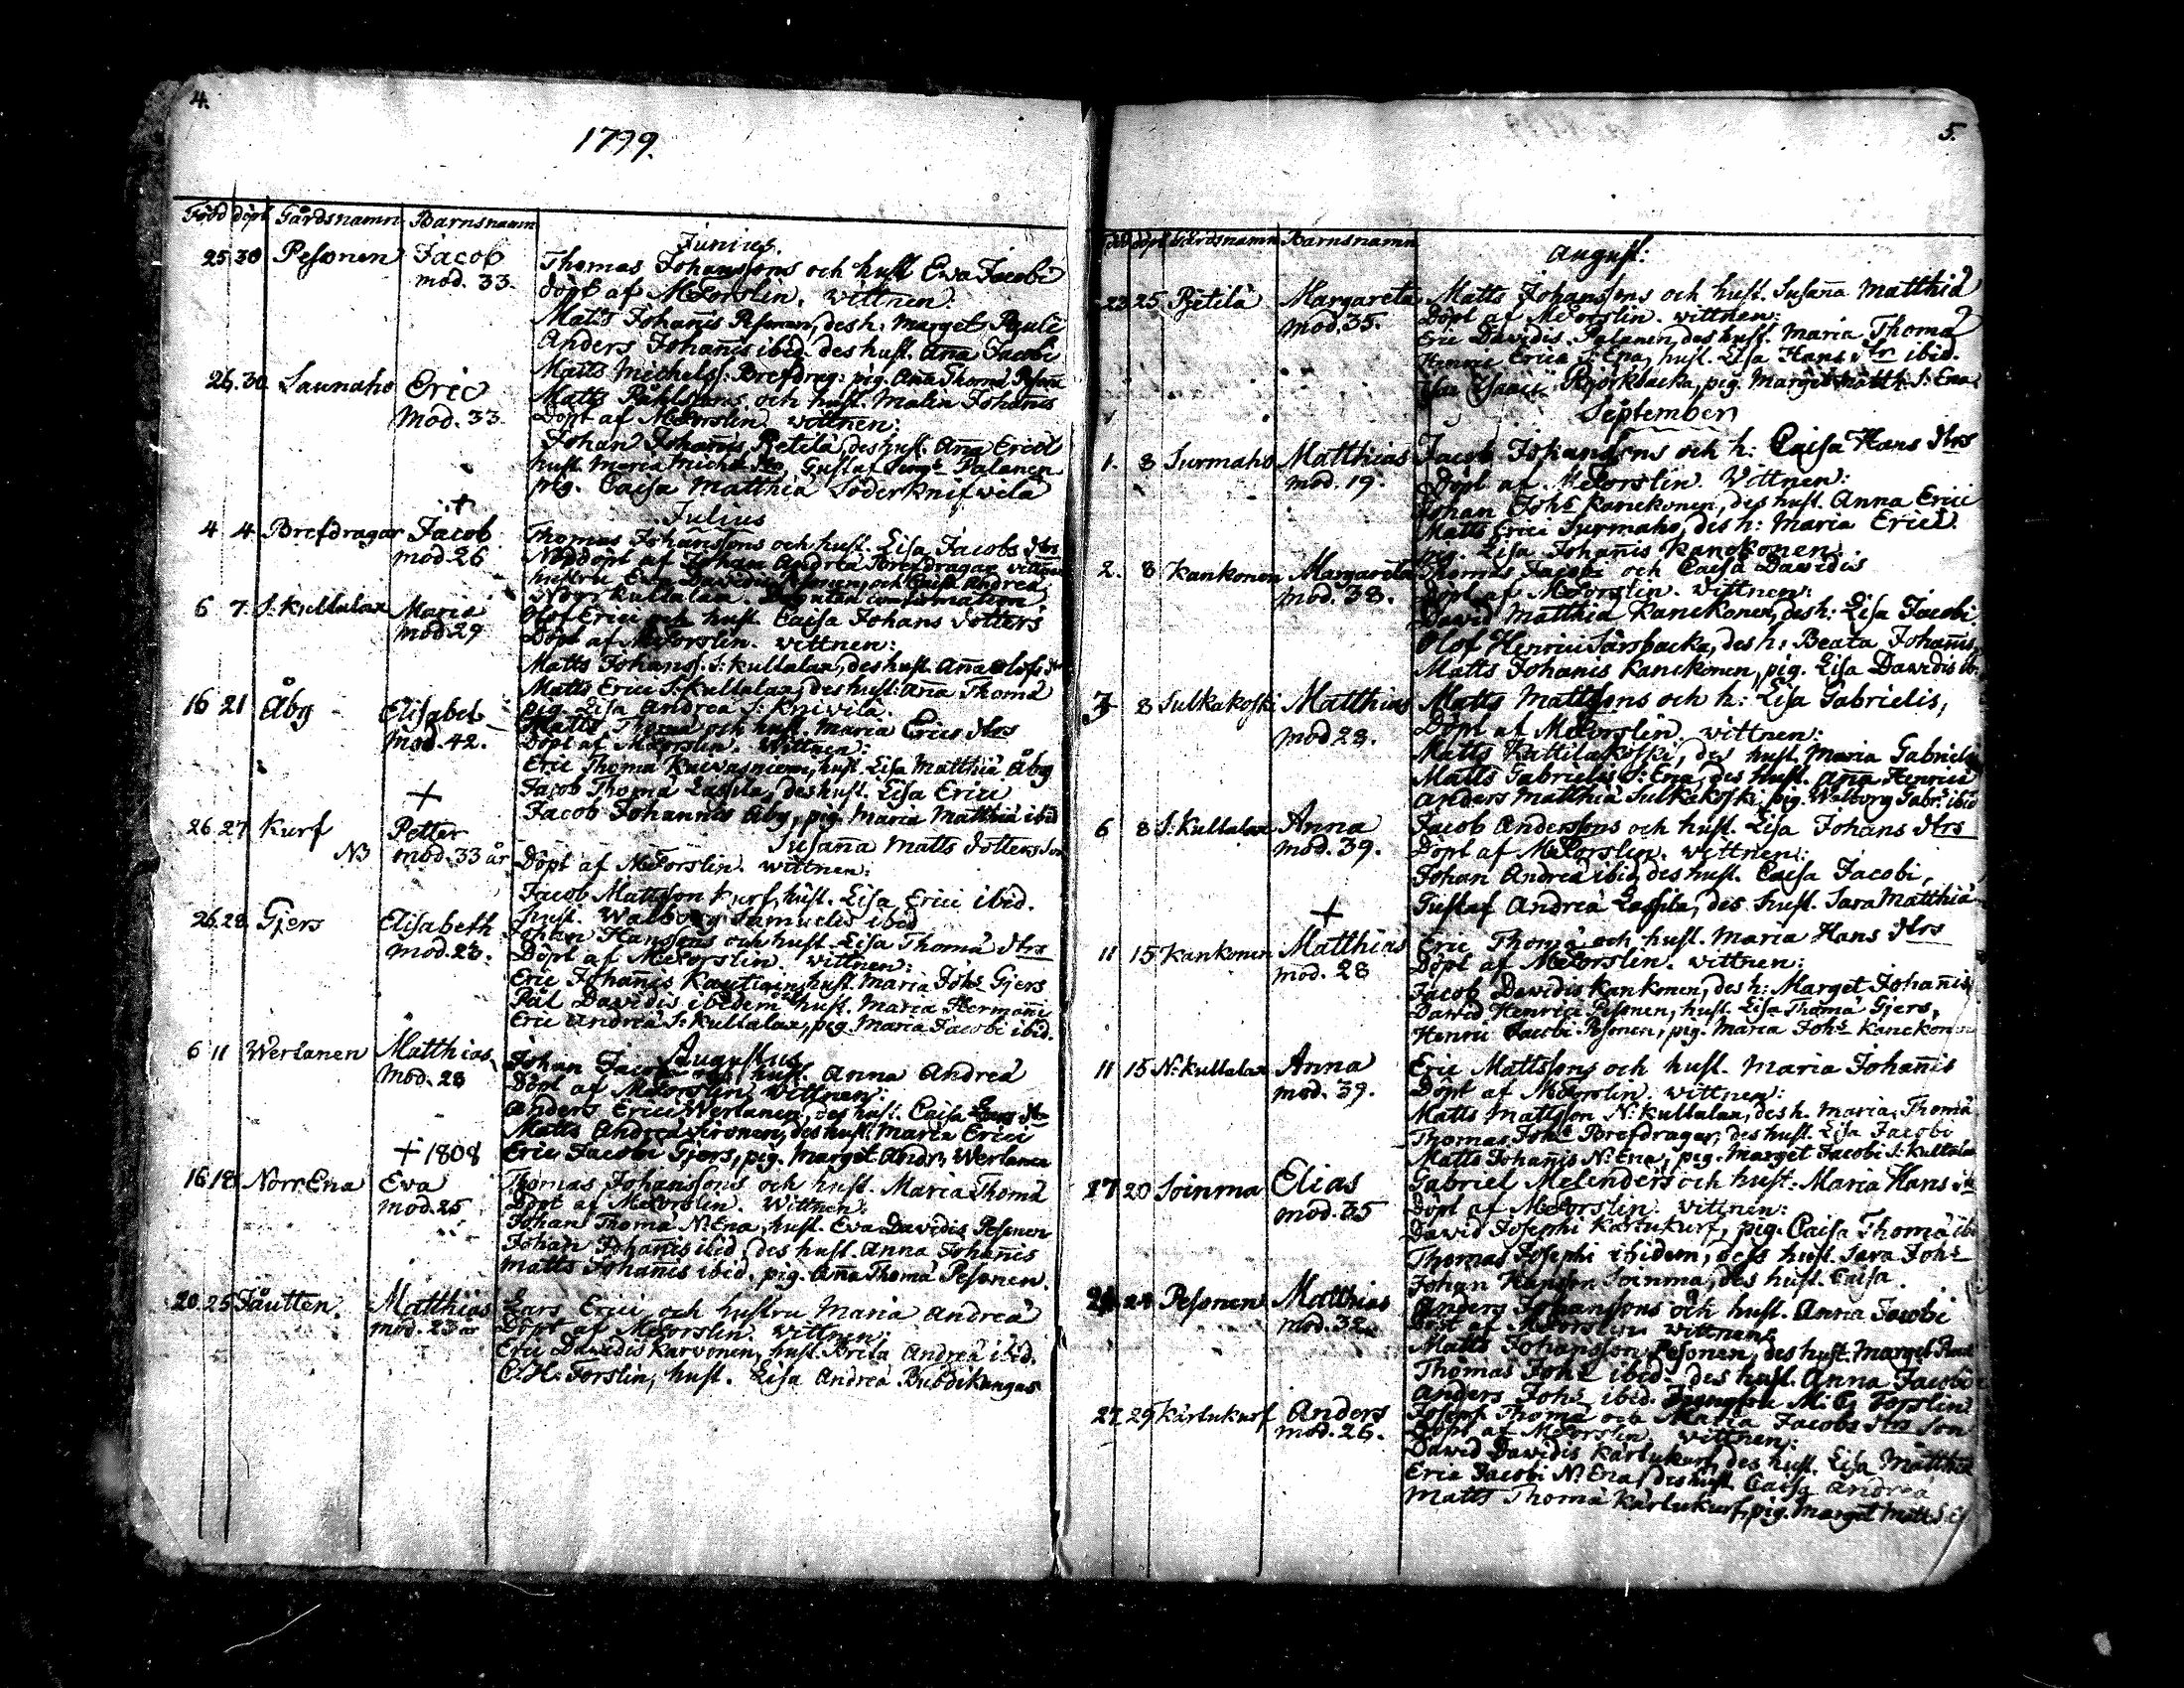 4.
1799.
Född döpt Gårdsnamn Barnsnamn
Junius.
25 30 Pesonen Jacob Thomas Johanssons och hust Eva Jacobi
mod. 33. döpt af M. Forslin. Vittnen.
Matts Johannis Pesonen, des h. Marget Pauli
Anders Johannis ibid. des hust. Anna Jacobi
Matts Michels: Brefdrag: pig. Anna Thomæ Peson
26. 30. Saunaho Eric Matts Påhlssons och hust. Malin Johannis
mod. 33. Döpt af M. Forslin. Vittnen:
Johan Johannis Petilä, des hust. Anna Erici
hust. Maria Gustaf Palanen
pig. Caisa Matthiæ Söderknifvilä
+
Julius
4 4 Brefdragar Jacob Thomas Johanssons och hust. Lisa Jacobs dtr
mod 26 Nöddöpt af Johan Andreæ Brefdragar vittnen
hustru Eva Davidis Pesonen, och Caisa Andreæ
Norrkullalax.
6 7. S: Kullalax Maria Olof Erici och hust. Caisa Johans dotters
mod 29 Döpt af M. Forslin. Vittnen:
Matts Johans: S: Kullalax, des hust. Anna Olofs dtr
Matts Erici S: Kullalax, des hust: Anna Thomæ
pig. Lisa Andreæ S: Knivilä.
16 21 Åby Elisabet Matts Thomæ och hust. Maria Erics dtrs
mod. 42. Döpt af M. Forslin. Wittnen:
Eric Thomæ Kuivasniemi, hust. Lisa Matthiæ Åby
Jacob Thomæ Lassila, des hust. Lisa Erici
+ Jacob Johannes Åby, pig. Maria Matthiæ ibid
26 27 Kurf Petter Susanna Matts dotters son
NB mod. 33 år Döpt af M. Forslin. Wittnen:
Jacob Mattsson Kurf, hust. Lisa Erici ibid.
hust. Walborg Samuelis ibid
26. 28. Gjers Elisabeth Johan Hanssons och hust. Lisa Thomæ dtrs
mod. 23. Döpt af M. Forslin. Vittnen:
Eric Johannis Kautiain, hust. Maria Johs Gjers
Pål Davidis ibidem hust. Maria Hermanni
Eric Andreæ S: Kullalax, pig. Maria Jacobi ibid.
Augustus
6 11 Werlanen Matthias Johan Jacobi och hust. Anna Andreæ
mod. 28 Döpt af M. Forslin. Vittnen.
Anders Erici Werlanen, des hust. Caisa
Matts Andreæ des hust. Maria Erici
+ 1808 Eric Jacobi Gjers, pig. Marget Andr: Werlanen
16 18 Norr Ena Eva Thomas Johanssons och hust. Maria Thomæ
mod. 25 Döpt af M. Forslin. Wittnen.
Johan Thomæ N: Ena, hust. Eva Davidis Pesonen
Johan Johannis ibid, des hust. Anna Johannis
Matts Johannis ibid. pig. Anna Thomæ Pesonen.
20 25 Fåutten. Matthias Lars Erici och hustru Maria Andreæ
mod. 23 år Döpt af M. Forslin. Vittnen:
Eric Davidis Karvonen, hust. Brita Andreæ ibid.
C. H. Forslin, hust. Lisa Andreæ
5.
Född döpt Gårdsnamn Barnsnamn
August:
23 25 Pjetilä Margareta Matts Johanssons och hust. Susanna Matthiæ
mod. 35. Döpt af M. Forslin. Vittnen:
Eric Davidis Palanen, des hust. Maria Thomæ
Henric Erici S: Ena, hust. Lisa Hans dtr ibid.
Björkbacka, pig. Marget Matth. S: Ena
September
1. 8 Surmaho Matthias Jacob Johanssons och h: Caisa Hans dtrs
mod. 19. Döpt af M. Forslin. Vittnen:
Johan Johs Kanckonen, des hust. Anna Erici
Matts Erici Surmaho, des h: Maria Erici.
pig. Lisa Johannis Kanckonen.
2. 8 Kankonen Margareta Thomas Jacobi och Caisa Davidis
mod. 38. Döpt af M. Forslin. Vittnen:
David Matthiæ Kanckonen, des h: Lisa Jacobi
Olof Henrici Särsbacka, des h: Beata Johannis,
Matts Johanis Kanckonen, pig. Lisa Davidis ib:
7 8 Sulkakoski Matthias Matts Mattsons och h: Lisa Gabrielis,
mod 28. Döpt af M. Forslin. Vittnen:
Matts Kattilakoski, des hust. Maria Gabrielis
Matts Gabrielis S: Ena, des hust. Anna Henrici
Anders Matthiæ Sulkakoski, pig. Walborg Gabr. ibid
6 8 S: Kullalax Anna Jacob Anderssons och hust. Lisa Johans dtrs
mod. 39. Döpt af M. Forslin. Vittnen:
Johan Andreæ ibid, des hust. Caisa Jacobi,
+ Gustaf Andreæ Lassila, des hust. Sara Matthiæ
11 15 Kankonen Matthias Eric Thomæ och hust. Maria Hans dtrs
mod. 28 Döpt af M. Forslin. Vittnen:
Jacob Davidis Kankonen, des h: Marget Johannis
David Henrici Pesonen, hust. Lisa Thomæ Gjers,
Henric Jacobi Pesonen, pig. Maria Johs Kanckonen
11 15 N: Kullalax Anna Eric Mattssons och hust. Maria Johannis
mod. 39. Döpt af M. Forslin. Vittnen:
Matts Mattsson N: Kullalax, des h. Maria Thomæ
Thomas Johs Brefdragar, des hust. Lisa Jacobi
Matts Johannis N: Ena, pig. Marget Jacobi S: Kullalax
17 20 Soinma Elias Gabriel Melenders och hust: Maria Hans dtr
mod. 35 Döpt af M. Forslin. Vittnen:
David Josephi Kärtukurf, pig. Caisa Thomæ ibi
Thomas Josephi ibidem, dess hust. Sara Johs
Johan Hansson Soinma, des hust. Caisa.
28 Pesonen Matthias Anders Johanssons och hust. Anna Jacobi
mod. 32 Döpt af M. Forslin Vittnen
Matts Johansson Pesonen, des hust. Marget Paul
Thomas Johs ibid. des hust. Anna Jacobi
Anders Johs ibid. Jungfru M. C. Forslin
27 29 Kärtukurf Anders Joseph Thomæ och Maria Jacobs dtrs son
mod. 26. Döpt af M. Forslin. Vittnen:
David Davidis Kärtukurf, des hust. Lisa Matthiæ
Eric Jacobi N: Ena, des hust. Caisa Andreæ
Matts Thomæ Kärtukurf, pig. Marget Matt.